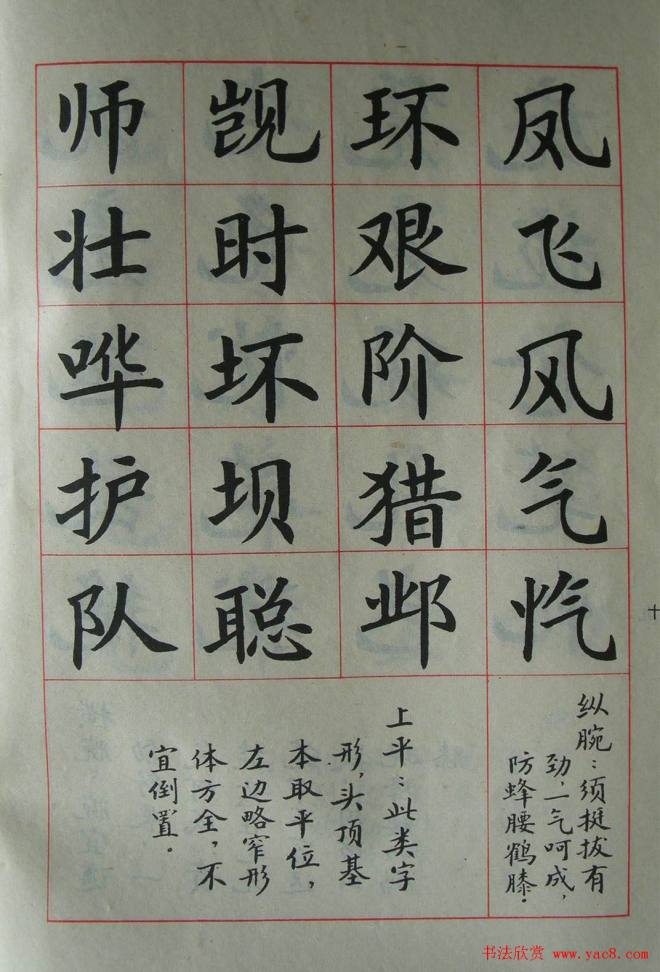 凤飞风气忾
纵腕：须挺拔有
劲，一气呵成，
防蜂腰鹤膝。
环艰阶猎邺
觊时坏坝聪
师壮哗护队
上平：此类字
形，头顶基
本取平位，
左边略窄形
体方全，不
宜倒置。
十
书法欣赏 www.yac8.com